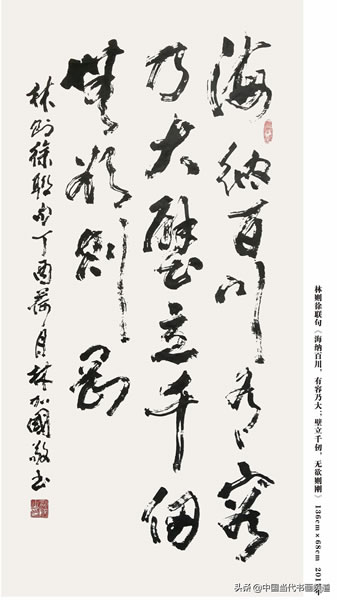 海纳百川有容
乃大壁立千仞
無欲则刚
林则徐联句丁酉荷月林加國敬书
林则徐联句《海纳百川，有容乃大；壁立千仞，无欲则刚》136cm×68cm
头条 @中国当代书画频道